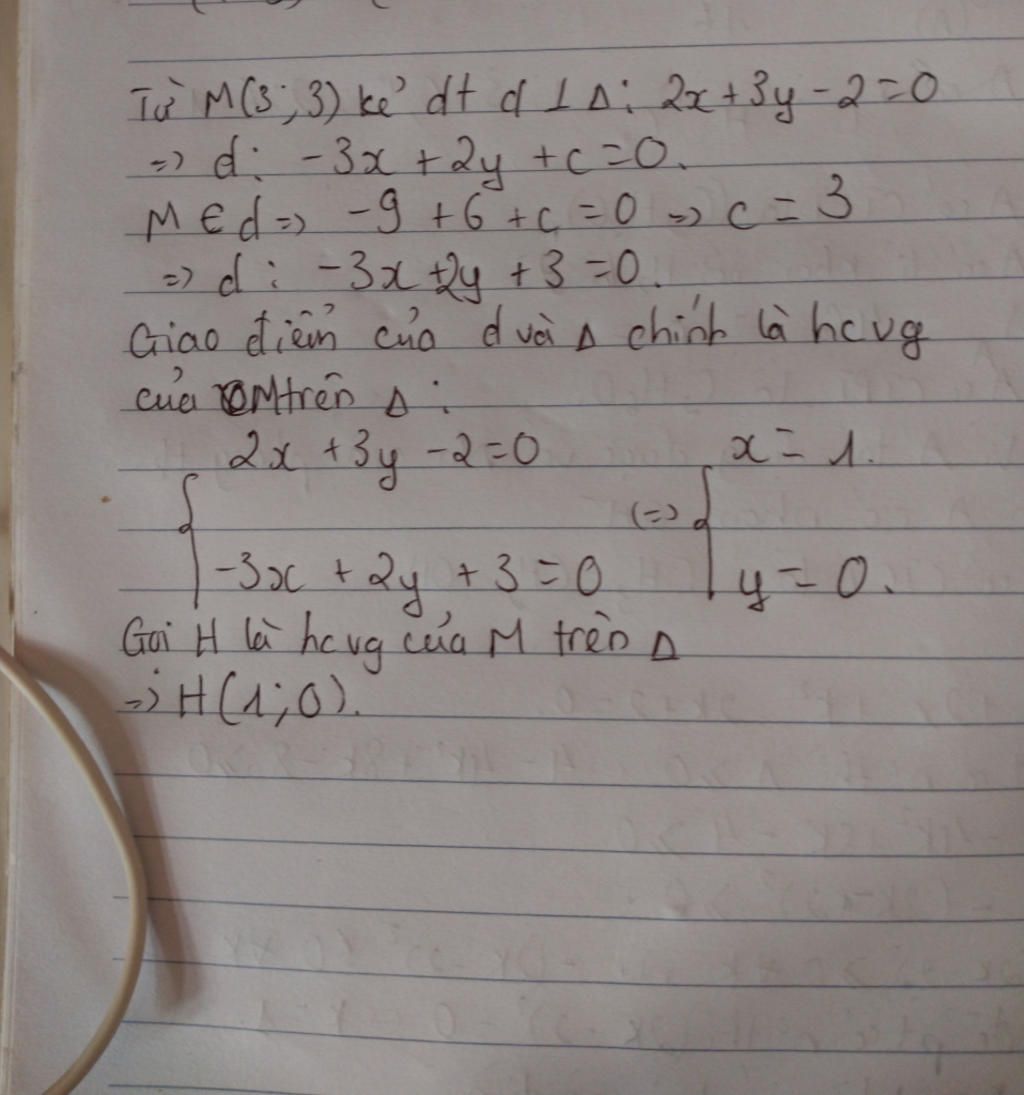 Từ M(3;3) kẻ đt d ⊥ Δ: 2x+3y-2=0
=> d: -3x + 2y + c = 0.
M ∈ d => -9 + 6 + c = 0 => c = 3
=> d: -3x + 2y + 3 = 0.
Giao điểm của d và Δ chính là hcvg
của M trên Δ:
2x + 3y - 2 = 0 x = 1.
{ (=> {
-3x + 2y + 3 = 0 y = 0.
Gọi H là hcvg của M trên Δ
=> H(1;0).